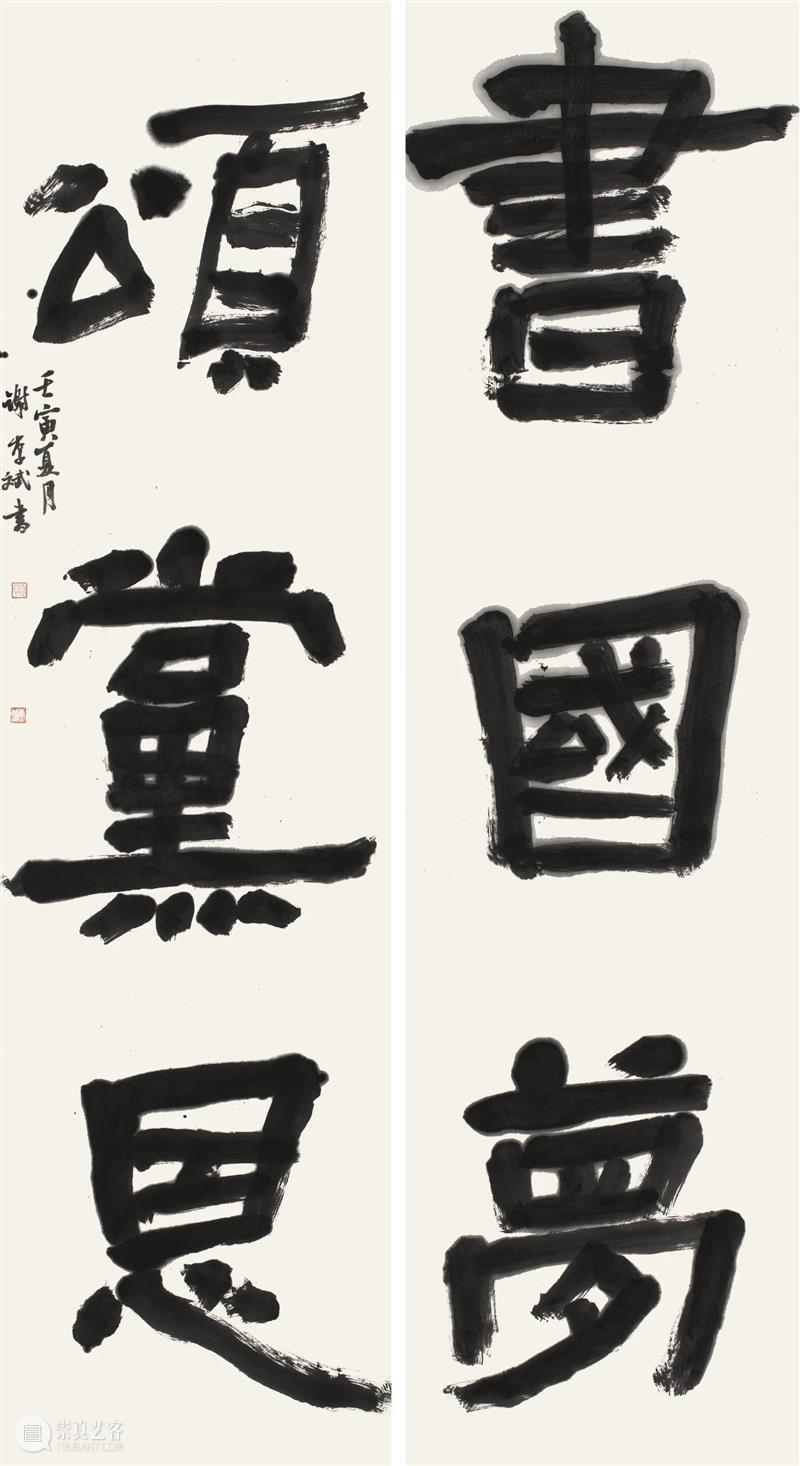 書國夢
頌黨恩
壬寅夏月
謝李斌書
崇真艺客
TRUEART.COM